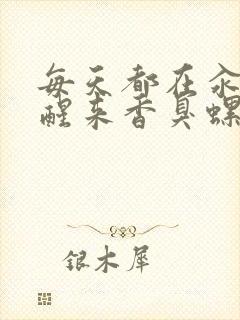 每天都在汆
醒来香臭螺
银木犀